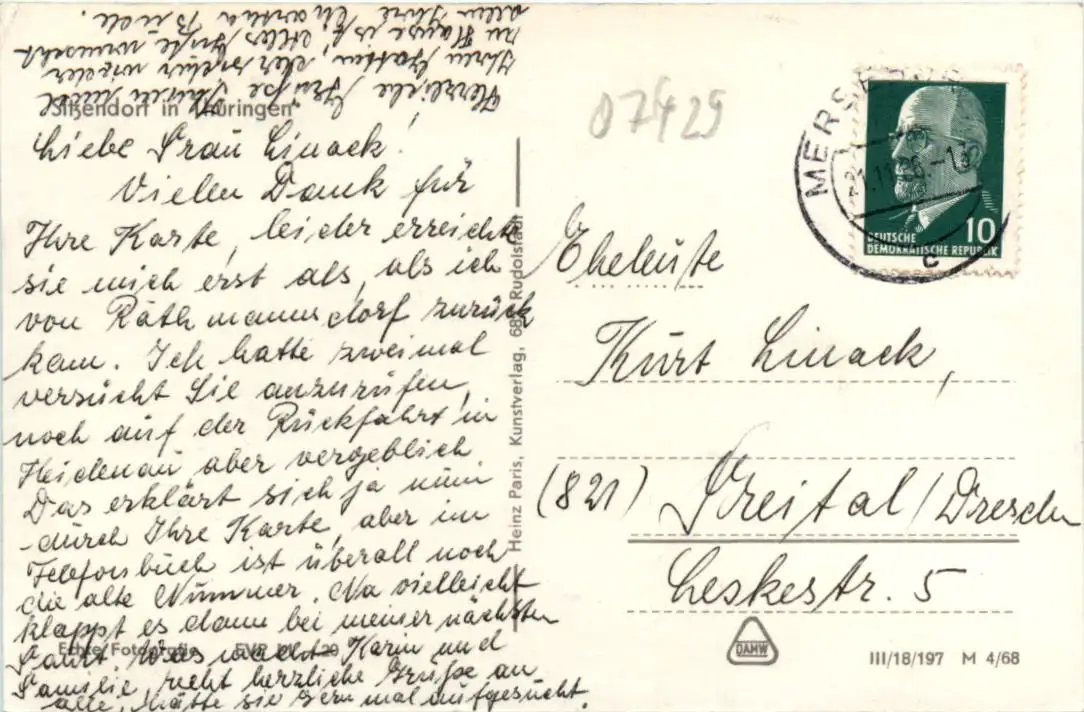 Sitzendorf in Thüringen
Liebe Frau Linack!
Vielen Dank für
Ihre Karte, leider erreichte
sie mich erst als, als ich
von Rathmannsdorf zurück
kam. Ich hatte zweimal
versücht Sie anzurüfen,
noch auf der Rückfahrt in
Heidenau aber vergeblich
Das erklärt sich ja nun
durch Ihre Karte, aber im
Telefonbuch ist überall noch
die alte Nummer. Na vielleicht
klappt es dann bei meiner nächsten
Fahrt. Was macht Karin und
Familie, recht herzliche Grüße an
alle, hätte sie gern mal aufgesücht.
Herzliche Grüße Ihnen und
Ihrem Gatten, der sicher wieder
zu Hause ist, alles Gute wünscht
allen Ihre Martha
Echte Fotografie
Heinz Paris, Kunstverlag, 68 Rudolstadt
07429
MERSEBURG
c
10
DEUTSCHE
DEMOKRATISCHE REPUBLIK
Eheleute
Kurt Linack,
(821) Freital/Dresden
Leskestr. 5
DAMW
III/18/197 M 4/68